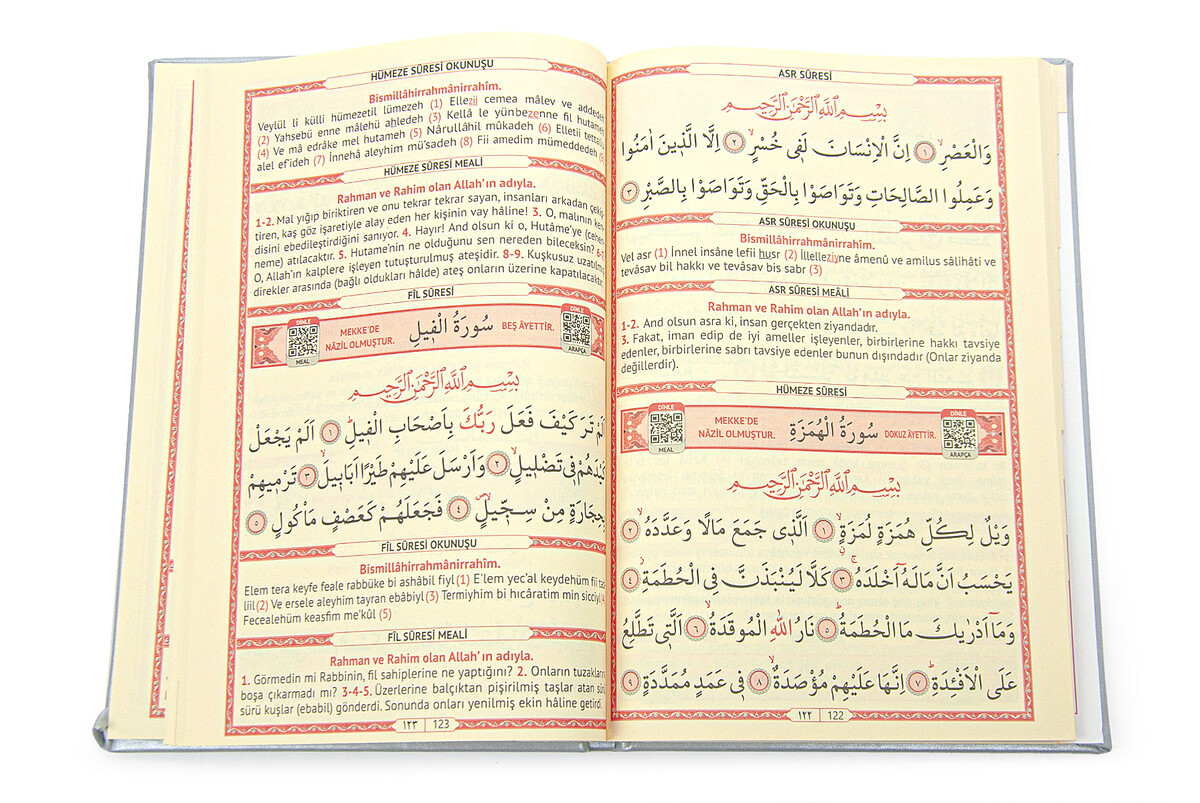 ASR SÛRESİ
بِسْمِ اللّٰهِ الرَّحْمٰنِ الرَّحِيمِ
وَالْعَصْرِۙ ﴿١﴾ اِنَّ الْاِنْسَانَ لَف۪ي خُسْرٍۙ ﴿٢﴾ اِلَّا الَّذ۪ينَ اٰمَنُوا
وَعَمِلُوا الصَّالِحَاتِ وَتَوَاصَوْا بِالْحَقِّ وَتَوَاصَوْا بِالصَّبْرِ ﴿٣﴾
ASR SÛRESİ OKUNUŞU
Bismillâhirrahmânirrahîm.
Vel asr (1) İnnel insâne lefii husr (2) İllelleziyne âmenû ve amilus sâlihâti ve
tevâsav bil hakkı ve tevâsav bis sabr (3)
ASR SÛRESİ MEÂLİ
Rahman ve Rahim olan Allah'ın adıyla.
1-2. And olsun asra ki, insan gerçekten ziyandadır.
3. Fakat, iman edip de iyi ameller işleyenler, birbirlerine hakkı tavsiye
edenler, birbirlerine sabrı tavsiye edenler bunun dışındadır (Onlar ziyanda
değillerdir).
HÜMEZE SÛRESİ
DİNLE
MEAL
MEKKE'DE
NÂZİL OLMUŞTUR.
سُورَةُ الْهُمَزَةِ
DOKUZ ÂYETTİR.
DİNLE
ARAPÇA
بِسْمِ اللّٰهِ الرَّحْمٰنِ الرَّحِيمِ
وَيْلٌ لِكُلِّ هُمَزَةٍ لُمَزَةٍۙ ﴿١﴾ اَلَّذ۪ي جَمَعَ مَالًا وَعَدَّدَهُۙ ﴿٢﴾
يَحْسَبُ اَنَّ مَالَهُٓ اَخْلَدَهُۚ ﴿٣﴾ كَلَّا لَيُنْبَذَنَّ فِي الْحُطَمَةِۘ ﴿٤﴾
وَمَٓا اَدْرٰيكَ مَا الْحُطَمَةُۜ ﴿٥﴾ نَارُ اللّٰهِ الْمُوقَدَةُۙ ﴿٦﴾ اَلَّت۪ي تَطَّلِعُ
عَلَى الْاَفْـِٔدَةِۜ ﴿٧﴾ اِنَّهَا عَلَيْهِمْ مُؤْصَدَةٌۙ ﴿٨﴾ ف۪ي عَمَدٍ مُمَدَّدَةٍ ﴿٩﴾
١٢٢ 122
HÜMEZE SÛRESİ OKUNUŞU
Bismillâhirrahmânirrahîm.
Veylül li külli hümezetil lümezeh (1) Ellezii cemea mâlev ve addedeh
(2) Yahsebü enne mâlehü ahledeh (3) Kellâ le yünbezenne fil hutameh
(4) Ve mâ edrâke mel hutameh (5) Nârullâhil mûkadeh (6) Elletii tettaliu
alel ef'ideh (7) İnnehâ aleyhim mü'sadeh (8) Fii amedim mümeddedeh
HÜMEZE SÛRESİ MEALİ
Rahman ve Rahim olan Allah'ın adıyla.
1-2. Mal yığıp biriktiren ve onu tekrar tekrar sayan, insanları arkadan çekiş-
tiren, kaş göz işaretiyle alay eden her kişinin vay hâline! 3. O, malının ken-
disini ebedileştirdiğini sanıyor. 4. Hayır! And olsun ki o, Hutâme'ye (cehen-
neme) atılacaktır. 5. Hutame'nin ne olduğunu sen nereden bileceksin? 6-7.
O, Allah'ın kalplere işleyen tutuşturulmuş ateşidir. 8-9. Kuşkusuz uzatılmış
direkler arasında (bağlı oldukları hâlde) ateş onların üzerine kapatılacaktır.
FİL SÛRESİ
DİNLE
MEAL
MEKKE'DE
NÂZİL OLMUŞTUR.
سُورَةُ الْف۪يلِ
BEŞ ÂYETTİR.
DİNLE
ARAPÇA
بِسْمِ اللّٰهِ الرَّحْمٰنِ الرَّحِيمِ
اَلَمْ تَرَ كَيْفَ فَعَلَ رَبُّكَ بِاَصْحَابِ الْف۪يلِۜ ﴿١﴾ اَلَمْ يَجْعَلْ
كَيْدَهُمْ ف۪ي تَضْل۪يلٍۙ ﴿٢﴾ وَاَرْسَلَ عَلَيْهِمْ طَيْرًا اَبَاب۪يلَۙ ﴿٣﴾ تَرْم۪يهِمْ
بِحِجَارَةٍ مِنْ سِجّ۪يلٍۖ ﴿٤﴾ فَجَعَلَهُمْ كَعَصْفٍ مَأْكُولٍ ﴿٥﴾
FİL SÛRESİ OKUNUŞU
Bismillâhirrahmânirrahîm.
Elem tera keyfe feale rabbüke bi ashâbil fiyl (1) E'lem yec'al keydehüm fii tad-
liil (2) Ve ersele aleyhim tayran ebâbiyl (3) Termiyhim bi hıcâratim min sicciyl
Fecealehüm keasfim me'kûl (5)
FİL SÛRESİ MEALİ
Rahman ve Rahim olan Allah'ın adıyla.
1. Görmedin mi Rabbinin, fil sahiplerine ne yaptığını? 2. Onların tuzaklarını
boşa çıkarmadı mı? 3-4-5. Üzerlerine balçıktan pişirilmiş taşlar atan sürü
sürü kuşlar (ebabil) gönderdi. Sonunda onları yenilmiş ekin hâline getirdi.
١٢٣ 123